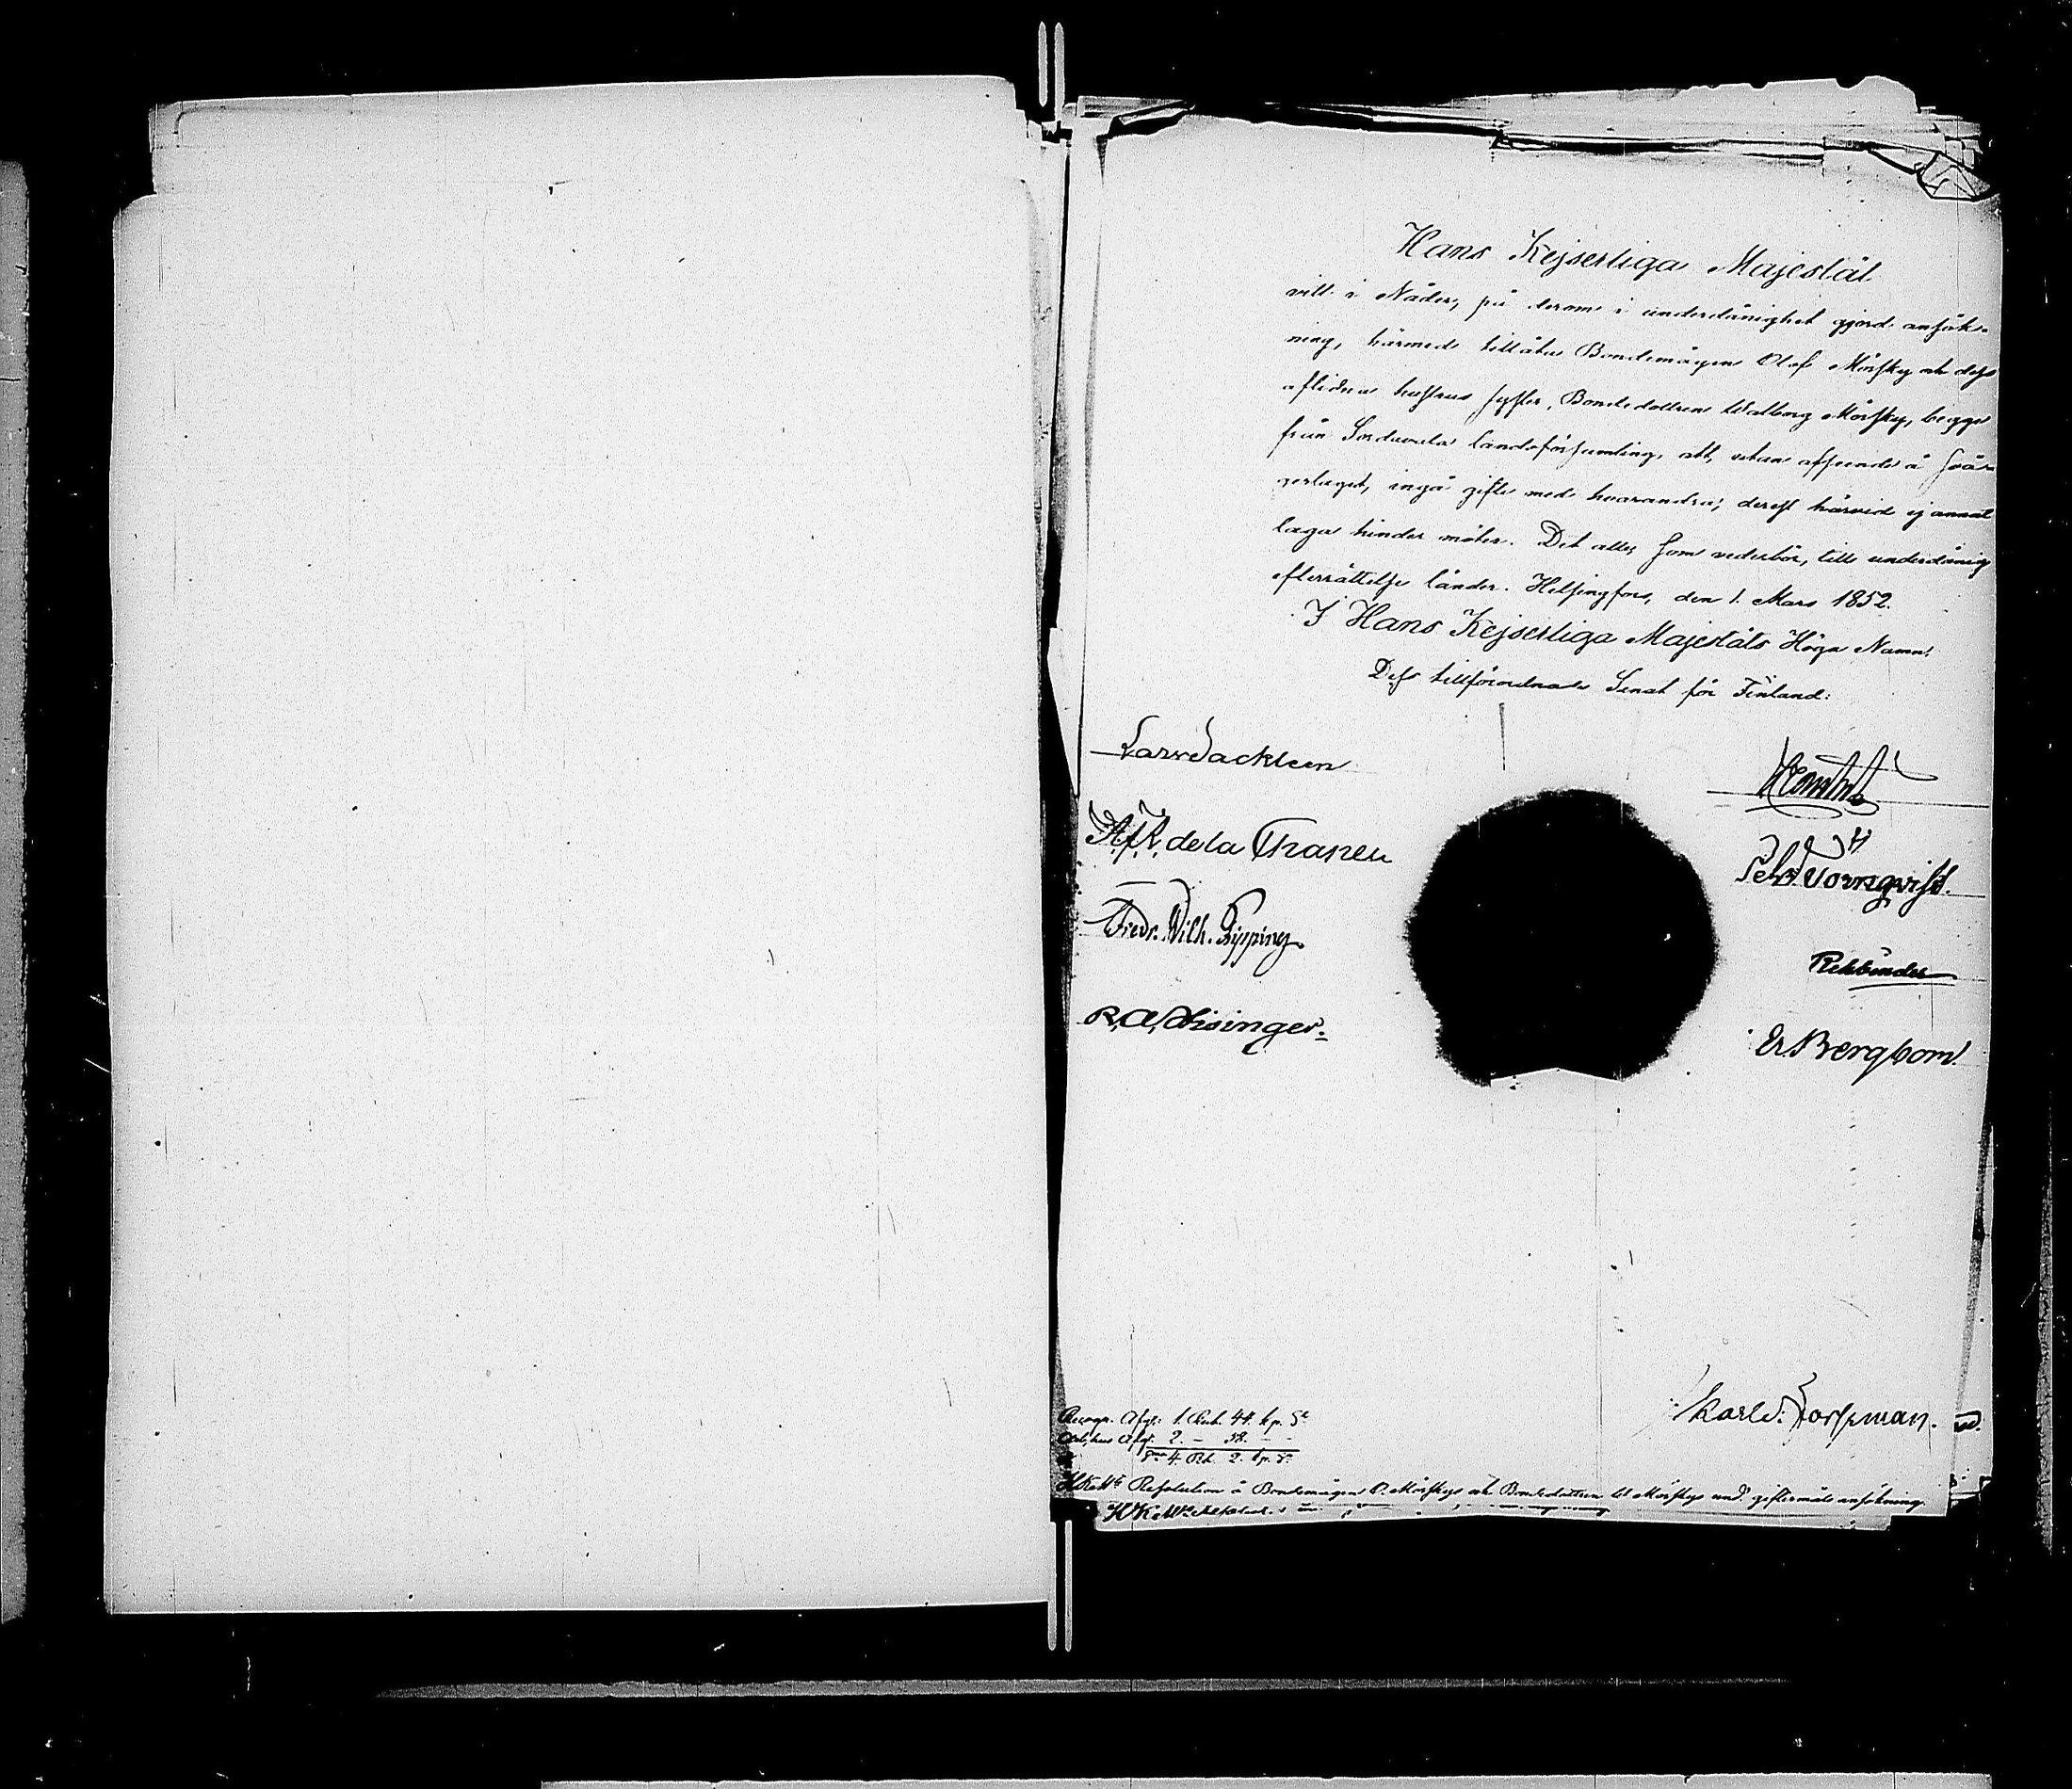 Hans Kejserliga Majestät
vill i Nåder, på derom i underdånighet gjord ansök-
ning, härmed tillåta Bondemågen Olof Mörsky och dess
aflidna hustrus syster, Bondedottren Walborg Mörsky, begge
från Sordavala landsförsamling, att, utan afseende å svå-
gerlaget, ingå gifte med hvarandra; derest härvid ej annat
laga hinder möter. Det alle, som vederbör, till underdånig
efterrättelse länder. Helsingfors, den 1. Mars 1852.
I Hans Kejserliga Majestäts Höga Namn:
Dess tillförordnade Senat för Finland:
Lars Sackleen
Pehr Törnqvist.
de la Chapelle
Fredr. Wilh. Pipping
Rehbinder
R. A. Hisinger.
Er. Bergbom
Karl Forssman.
Recogn. Afg: 1. Rub. 44. kp. Sr
Afg. 2. – 58. –
Sma 4. Rb. 2. kp. Sr
HKeMts Resolution å Bondemågen O. Mörskys och Bondedottren W. Mörskys und. giftermåls ansökning.